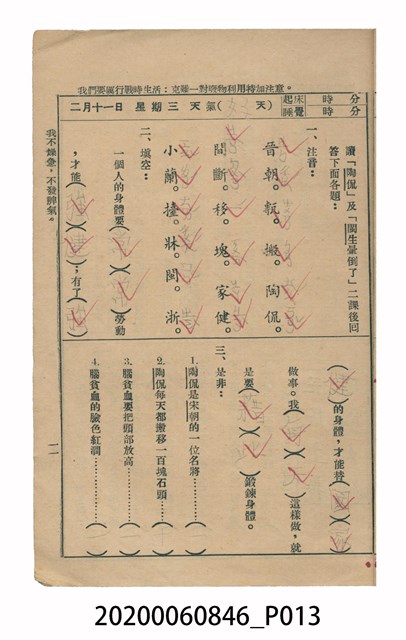 我們要厲行戰時生活:克難—對廢物利用特加注意。
二月十一日 星期三 天氣( 天) 起床 時 分
睡覺 時 分
讀「陶侃」及「閩生暈倒了」二課後回
答下面各題:
一、注音:
晉朝。甎。搬。陶侃。
間斷。移。塊。家健。
小蘭。擡。牀。閩。浙。
二、填空:
一個人的身體要( )( )勞動
,才能( )( );有了( )
( )的身體,才能替( )( )
做事。我( )( )這樣做,就
是要( )( )鍛鍊身體。
三、是非:
1.陶侃是宋朝的一位名將………( )
2.陶侃每天都搬移一百塊石頭……( )
3.腦貧血要把頭部放高…………( )
4.腦貧血的臉色紅潤……………( )
我不燥急,不發脾氣。
一一
20200060846_P013